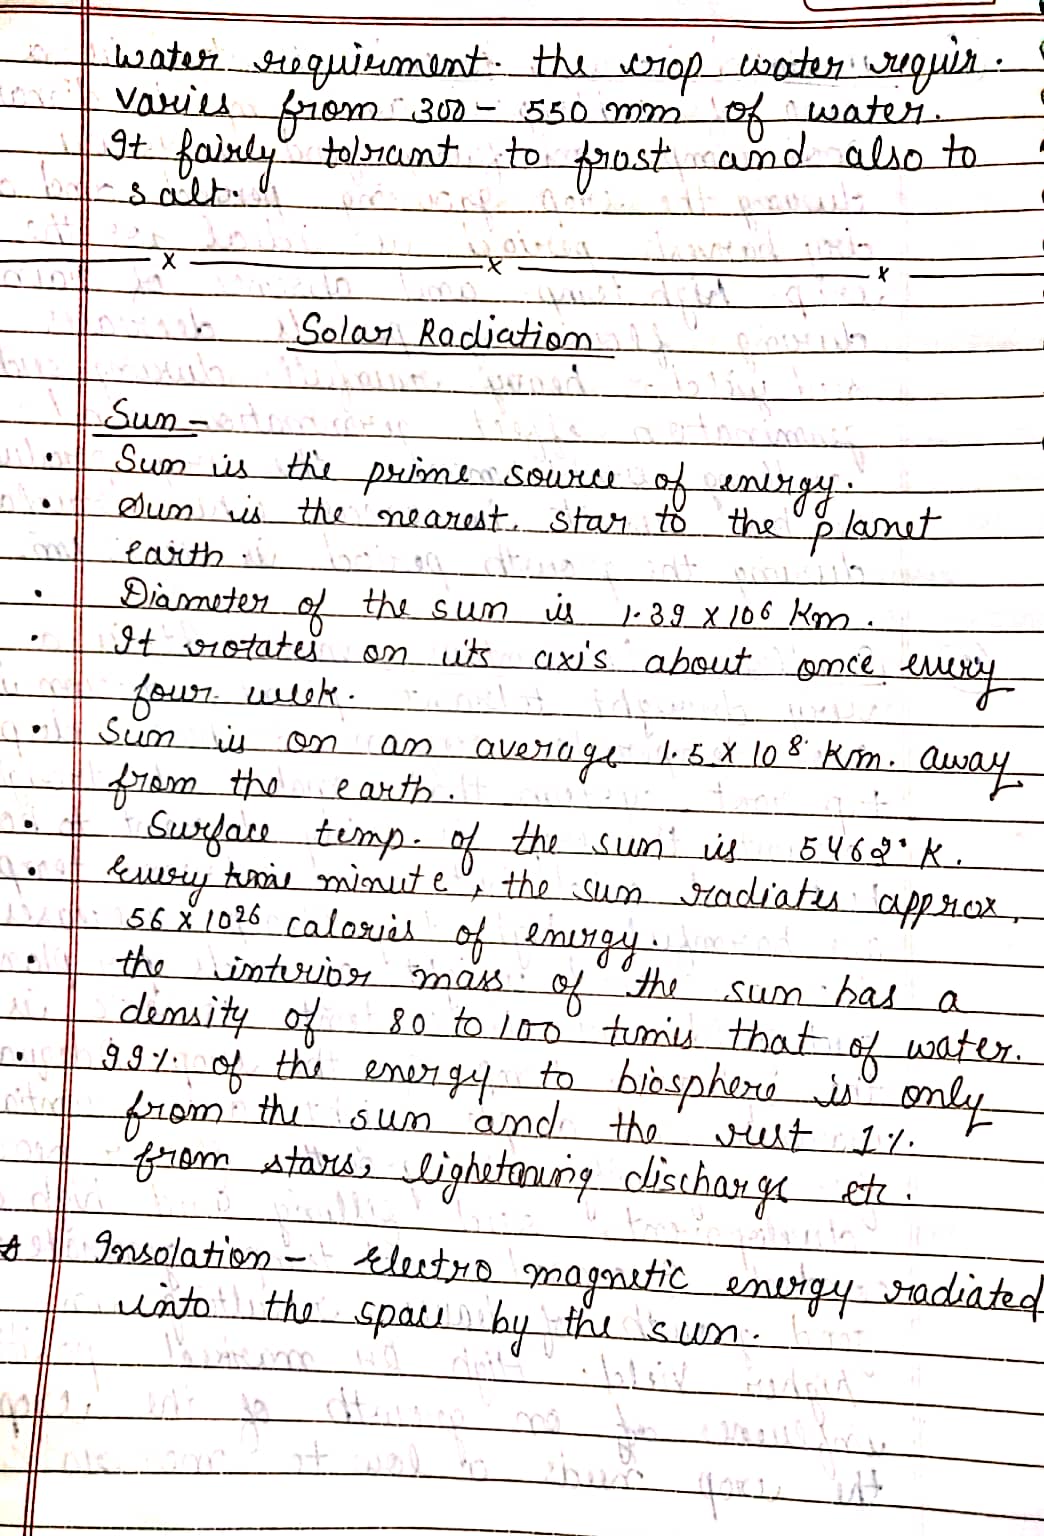 water requirment. the crop water requir.
varies from 300 - 550 mm of water.
It fairly tolrant to frost and also to
salt.
x x x
Solar Radiation
Sun -
• Sun is the prime source of energy.
• Sun is the nearest star to the planet
earth.
• Diameter of the sun is 1.39 x 10^6 Km.
• It rotates on its axis about once every
four week.
• Sun is on an average 1.5 x 10^8 Km. away
from the earth.
• Surface temp. of the sun is 5462° K.
• Every minute, the sun radiates approx.
56 x 10^26 calories of energy.
• the interior mass of the sun has a
density of 80 to 100 times that of water.
• 99% of the energy to biosphere is only
from the sun and the rest 1%.
from stars, lighetnuing discharge etc.
Insolation - Electro magnetic energy radiated
into the space by the sun.